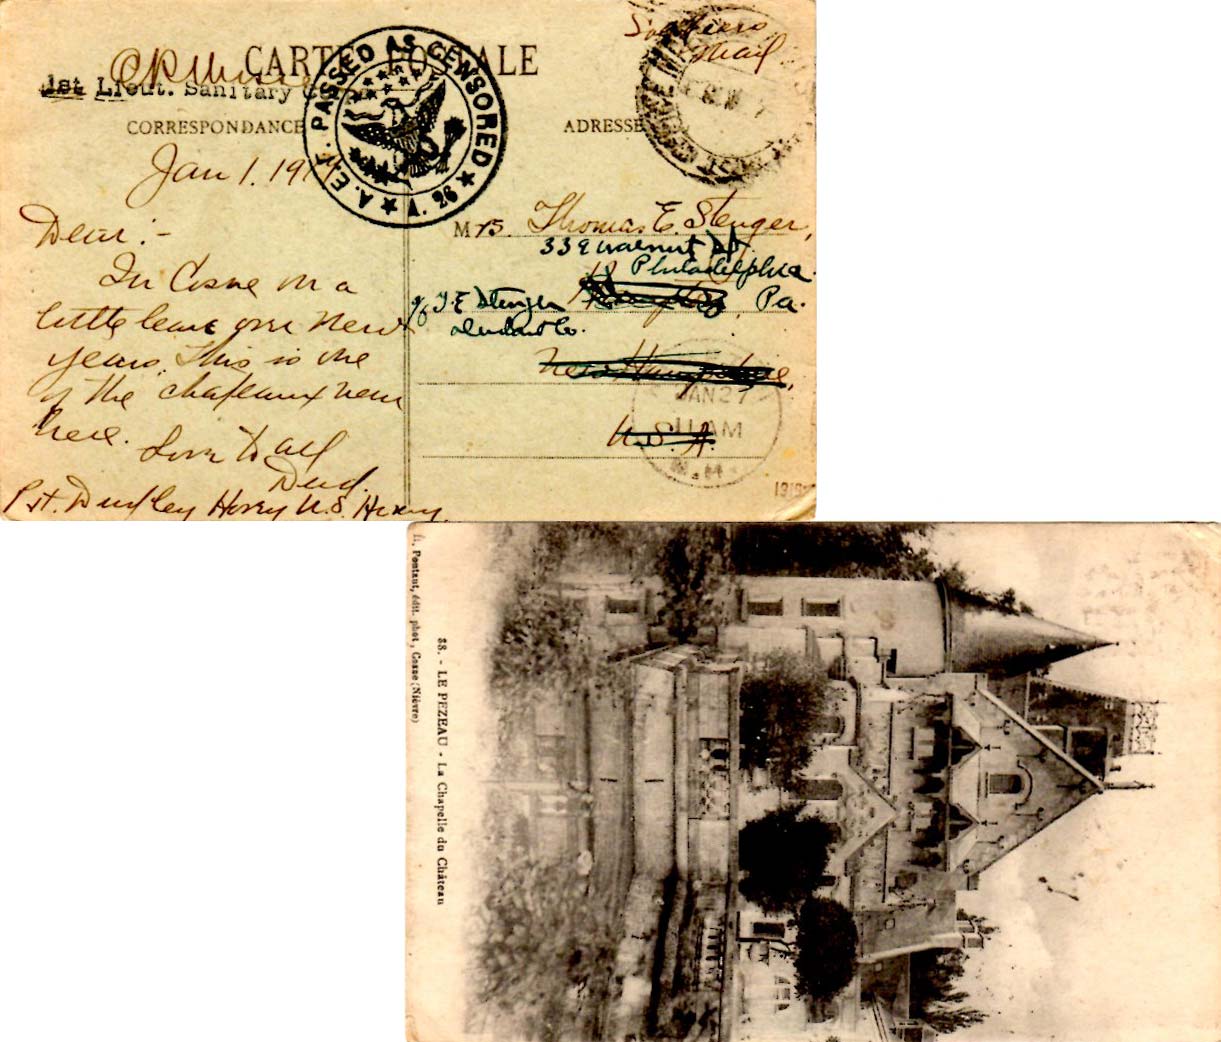 CARTE POSTALE
Soldiers
Mail
1st Lieut. Sanitary
A.E.F. PASSED AS CENSORED
A. 26
CORRESPONDANCE
ADRESSE
Jan 1. 1919
Dear :-
In Cosne on a
little leave over New
Years. This is one
of the chateaux near
here.
Love to all
Dud.
Pvt. Dudley Hovey U.S. Army.
Mrs Thomas E. Stenger,
339 Walnut St.
Philadelphia
Pa.
c/o T. E. Stenger
New Hampshire,
U.S.A.
JAN 27
11 AM
N.H.
1919
88. - LE PEZEAU - La Chapelle du Château
Pontaut, édit. phot., Cosne (Nièvre)